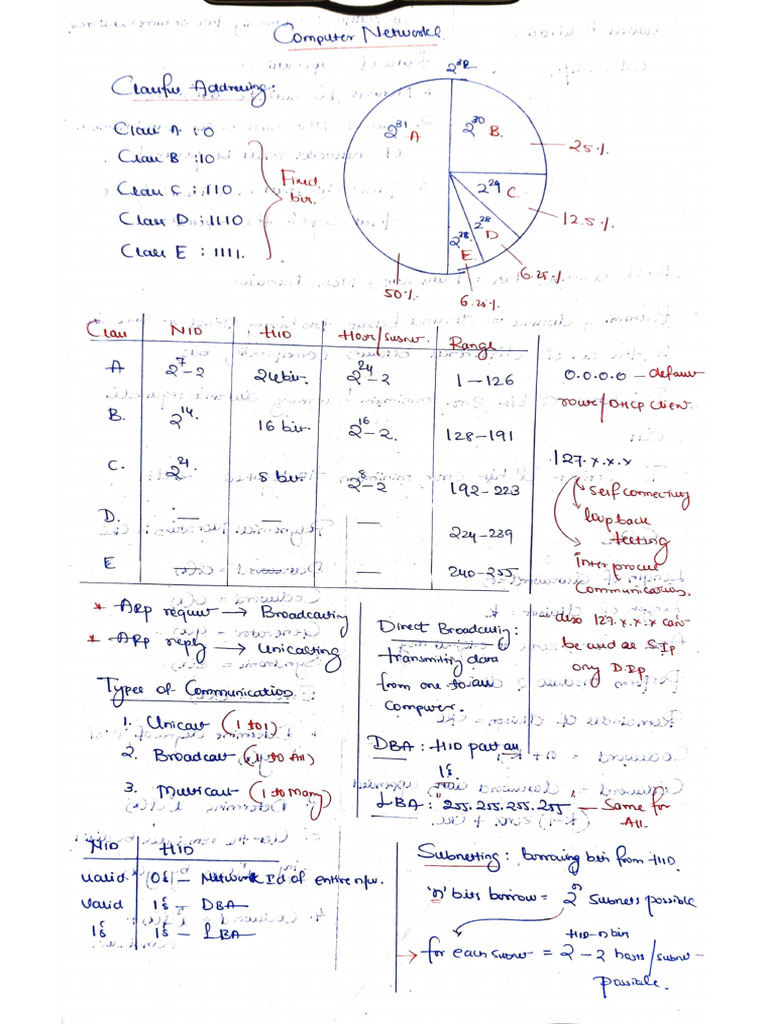 Computer Networks
Classful Addressing:
Class A : 0
Class B : 10
Class C : 110
Class D : 1110
Class E : 1111.
Fixed
bit.
2^32
2^31 A
2^30 B.
2^29 C.
2^28 D
2^28 E.
25%
12.5%
6.25%
6.25%
50%
Class NID HID Host/subnet. Range
A 2^7-2 24 bit. 2^24-2 1-126
B. 2^14. 16 bit. 2^16-2. 128-191
C. 2^24. 8 bit. 2^8-2 192-223
D. — — — 224-239
E — — — 240-255
0.0.0.0 - default
route/DHCP Client
127.x.x.x
self connecting
loopback
testing
Inter process
Communication.
also 127.x.x.x can
be used as S.Ip
only D.Ip
* ARp request → Broadcasting
* ARp reply → Unicasting
Types of Communication
1. Unicast (1 to 1)
2. Broadcast (1 to All)
3. Multicast (1 to Many)
Direct Broadcasting:
transmiting data
from one to all
computer.
DBA : HID part all
1s.
LBA : "255.255.255.255" - Same for
All.
NID HID
valid 0s - Network Id of entire n/w.
valid 1s - DBA
1s 1s - LBA
Subnetting : borrowing bits from HID.
'n' bits borrow = 2^n Subnets possible
for each subnet = 2^HID-n bits - 2 hosts/subnet
possible.